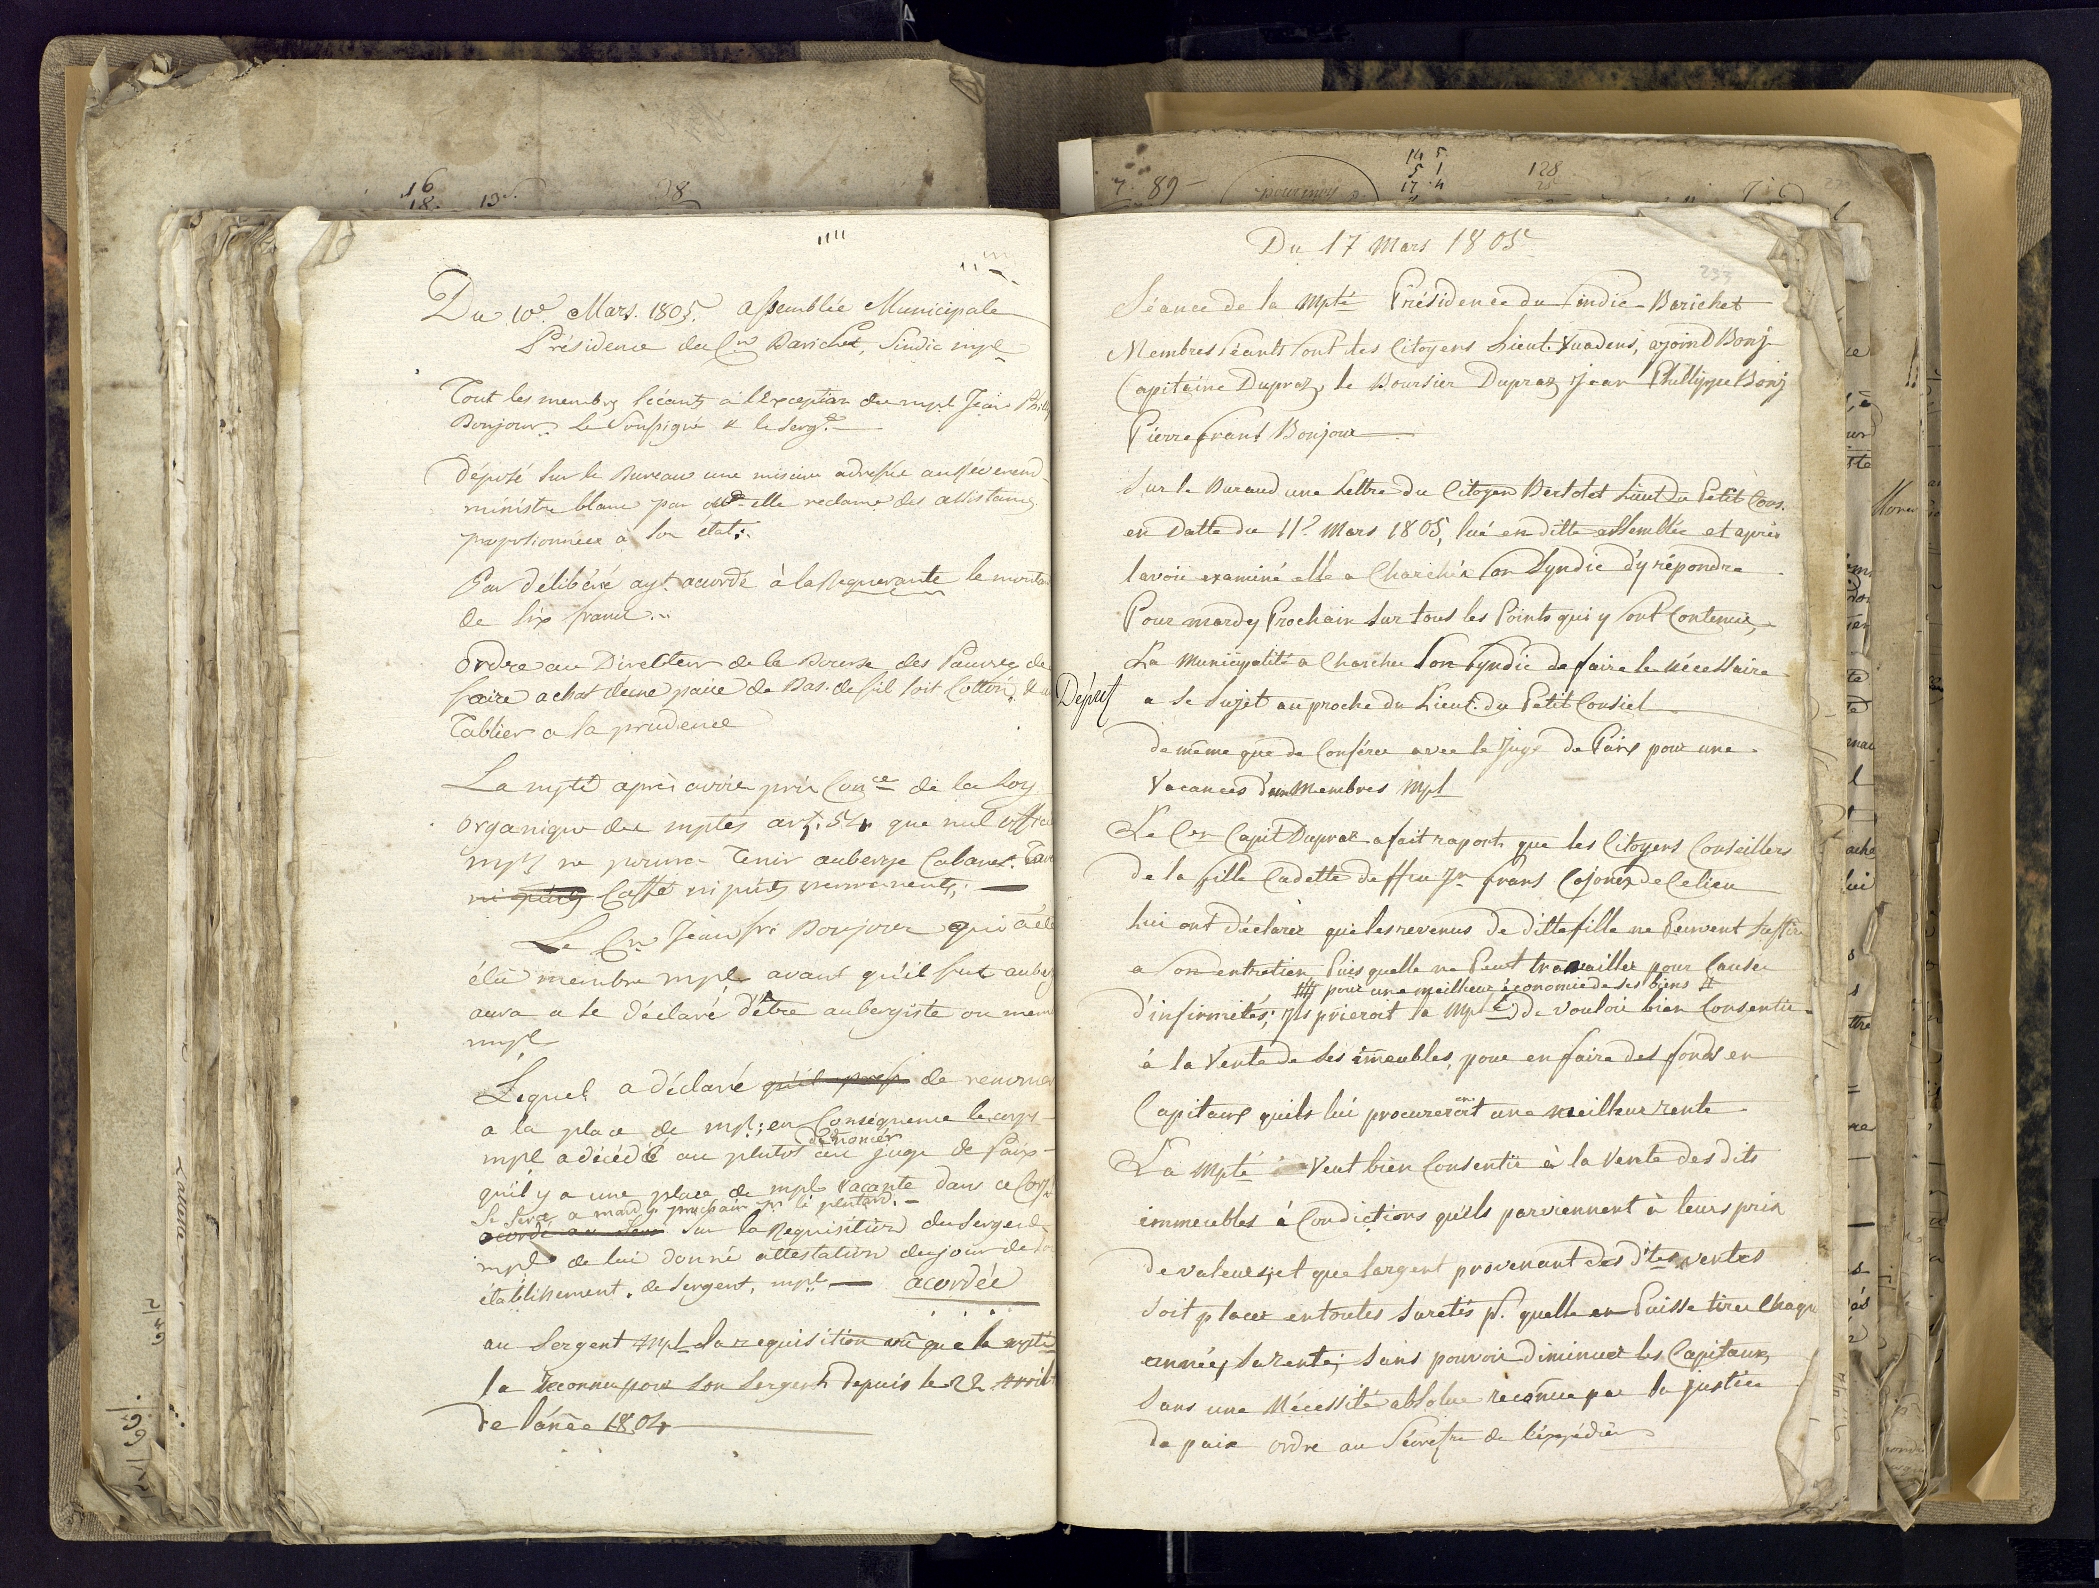 Du 10e. Mars. 1805. assemblée Municipale
Présidence du Cn Barichet, Sindic mpl
Tout les membres séeants à l'Exception du mpl Jean Phil
Bonjour. Le Soussigné & le Sergt.
déposé sur le Bureau une missive adressée au Réverend
ministre blanc par elle reclame des assistances
proportionnées à son état:.
Par délibéré ayt. acordé à la Requerante le montan
de six francs..
Ordre au Directeur de la Bourse des Pauvres de
faire achat d'une paire de Bas. de fil soit Cotton, &
Tablier a sa prudence
La mpté après avoir pris Conce de la Loy
organique des mptés art. 54 que nul offici
mpl ne pourra Tenir auberge Cabaret. Tav
ni Caffé ni pintes permanentes;
Le Cn Jean fs. Bonjour qui a été
élu membre mpl avant qu'il fut auber
aura a se déclaré d'être aubergiste ou mem
mpl
Lequel a déclaré de renoncer
a la place de mpl; en Conséquence le corps
dénoncer
mpl a décidé au plutot au juge de Paix
qu'il y a une place de mpl vacante dans ce Corp
Se sera a mardy prochain le plutard.
acordé au Serg Sur la Requisition du Sergend
mpl de lui donné attestation du jour de so
établissement. de Sergent. mpl — acordée
au Sergent Mpl Sa requisition vû que la mpté
la Reconnu pour son Sergent depuis le 22 Avril
de l'année 1804
Du 17 Mars 1805
233
Séance de la Mpté Présidence du Sindic Barichet
Membres séants sont les Citoyens Lieut. Vuadens, ajoint Bonj
Capitaine Dupraz, le Boursier Dupraz Jean Phillippe Bonj
Pierre frans Bonjour
Sur le Buraud une Lettre du Citoyen Bertolet Lieut du Petit Cons.
en datte du 11e Mars 1805, lue en ditte assemblée et après
lavoir examiné elle a Charchée son Syndic d'y répondre
Pour mardy Prochain sur tous les Points qui y sont Contenus,
La Municipalité a Charchee son Syndic de faire le nécessaire
Députe a se Sujet au proche du Lieut. du Petit Consiel
de même que de Conférer avec le Juge de Paix pour une
Vacances d'un Membres Mpl
Le Cen Capit Dupraz a fait raport que les Citoyens Conseillers
de la fille Cadette deffeu Jn frans Cojonex de Celieu
Lui ont déclarez que les revenus de ditte fille ne Peuvent suffire
a son entretien Puis quelle ne Peut travailler pour Cause
# pour une meilleur économie de ses biens #
d'infirmités; Ils prieroit la Mpté de vouloir bien Consentir
à la Vente de ses immeubles, pour en faire des fonds en
Capitaux quils lui procureroit une meilleur rente
La Mpté Veut bien Consentir à la Vente des dits
immeubles à Condictions qu'ils parviennent à leurs prix
de valeurs; et que largent provenant des dites ventes
soit placer en toutes suretés pr. quelle en Puisse tirer Chaque
année, sa rente; sans pouvoir diminuer les Capitaux,
sans une Nécessité absolue reconnue par la Justice
de paix ordre au Sécretre de l'éxpédier